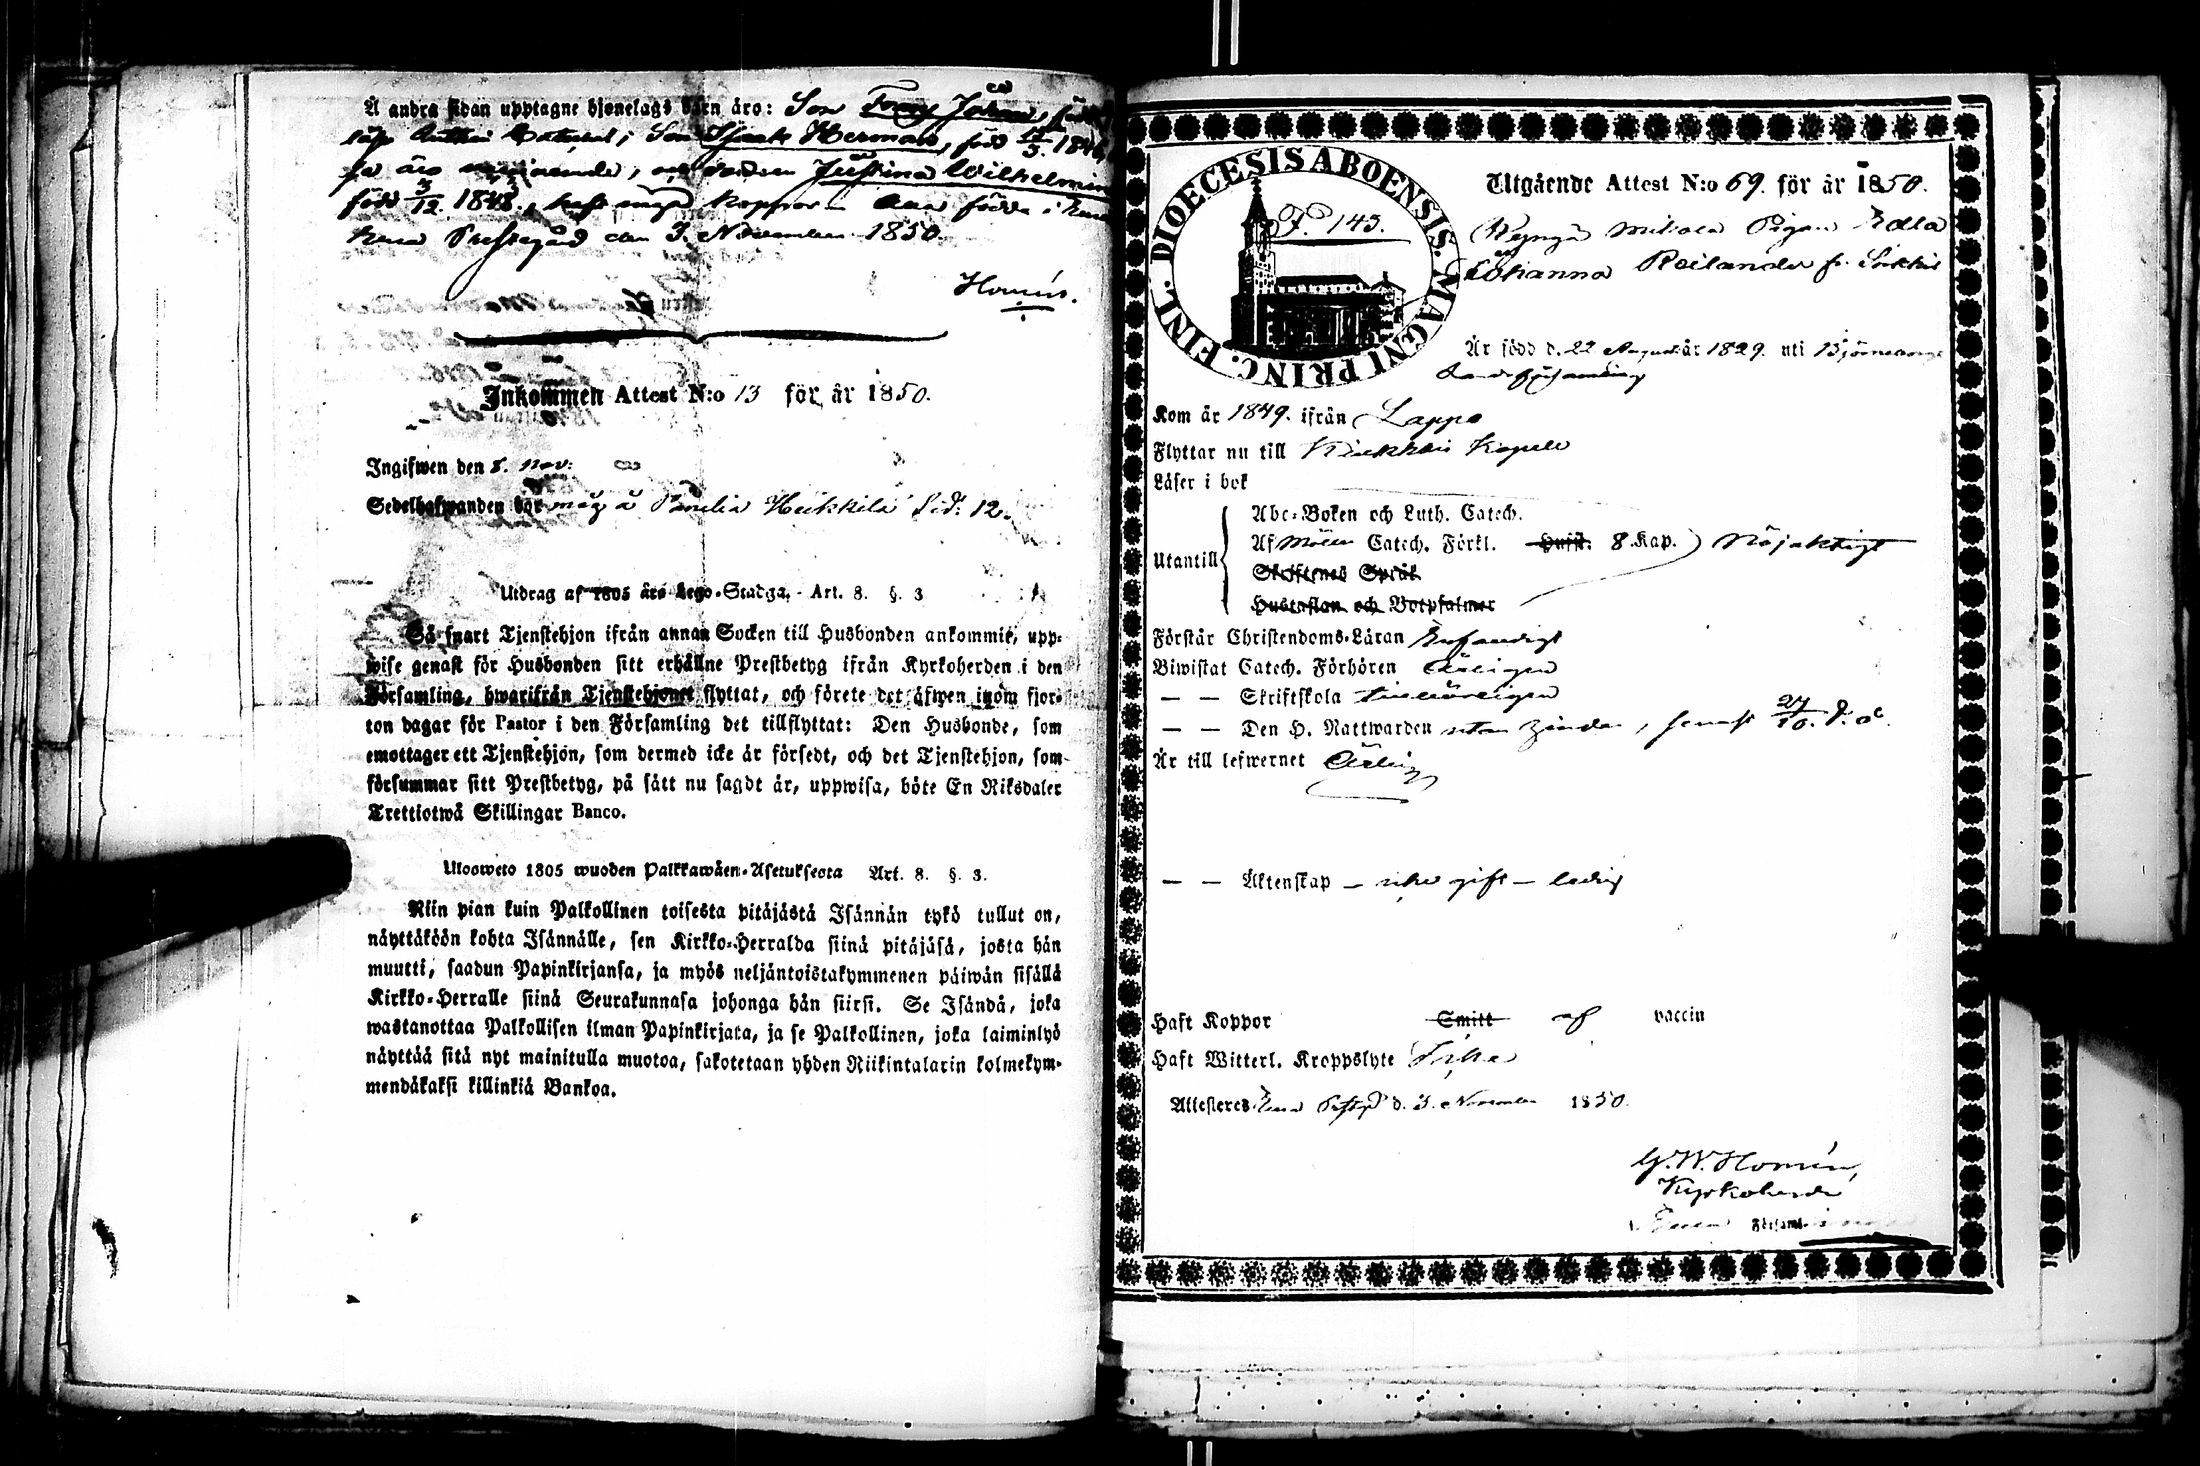 Å andra sidan upptagne hjonelags barn äro: Son Johan, född
Son Herman, född 12/5. 1846,
Justina Wilhelmina
född 3/12. 1848., haft koppor
Prestegård den 3. November 1850.
Homén.
Inkommen Attest N:o 13 för år 1850.
Ingifwen den 8. Nov:
Sedelhafwanden bör Panelia Heikkilä Sid: 12.
Utdrag af 1805 års Lego-Stadga, Art. 8. §. 3
Så snart Tjenstehjon ifrån annan Socken till Husbonden ankommit, upp-
wise genast för Husbonden sitt erhållne Prestbetyg ifrån Kyrkoherden i den
Församling, hwarifrån Tjenstehjonet flyttat, och förete det äfwen inom fjor-
ton dagar för Pastor i den Församling det tillflyttat: Den Husbonde, som
emottager ett Tjenstehjon, som dermed icke är försedt, och det Tjenstehjon, som
försummar sitt Prestbetyg, på sätt nu sagdt är, uppwisa, böte En Riksdaler
Trettiotwå Skillingar Banco.
Ulosweto 1805 wuoden Palkkawäen-Asetuksesta Art. 8. §. 3.
Niin pian kuin Palkollinen toisesta pitäjästä Isännän tykö tullut on,
näyttäköön kohta Isännälle, sen Kirkko-Herralda siinä pitäjäsä, josta hän
muutti, saadun Papinkirjansa, ja myös neljäntoistakymmenen päiwän sisällä
Kirkko-Herralle siinä Seurakunnasa johonga hän siirsi. Se Isändä, joka
wastanottaa Palkollisen ilman Papinkirjata, ja se Palkollinen, joka laiminlyö
näyttää sitä nyt mainitulla muotoa, sakotetaan yhden Riikintalarin kolmekym-
mendäkaksi killinkiä Bankoa.
DIOECESIS ABOENSIS. MAGNI PRINC. FINL.
F. 145.
Utgående Attest N:o 69. för år 1850.
Pigan Edla
Johanna Reilander fr.
Är född d. 22 Augusti år 1829. uti Björneborgs
Landsförsamling
Kom år 1849. ifrån Lappo
Flyttar nu till Kiukkais Kapell
Läser i bok
Utantill
Abc-Boken och Luth. Catech.
Af Möllers Catech. Förkl. Husst. 8 Kap. Nöjaktigt
Skriftenes Språk
Hustaflan och Botpsalmer
Förstår Christendoms-Läran
Biwistat Catech. Förhören årligen
— — Skriftskola
— — Den H. Nattwarden utan hinder, senast 27/10. d. å.
Är till lefwernet Ärlig
— — Äktenskap — icke gift — ledig
Haft Koppor Smitt af vaccin
Haft Witterl. Kroppslyte Icke
Attesteres Eura Prestgd d. 3. November 1850.
G. W. Homén,
Kyrkoherde
Eura Församling